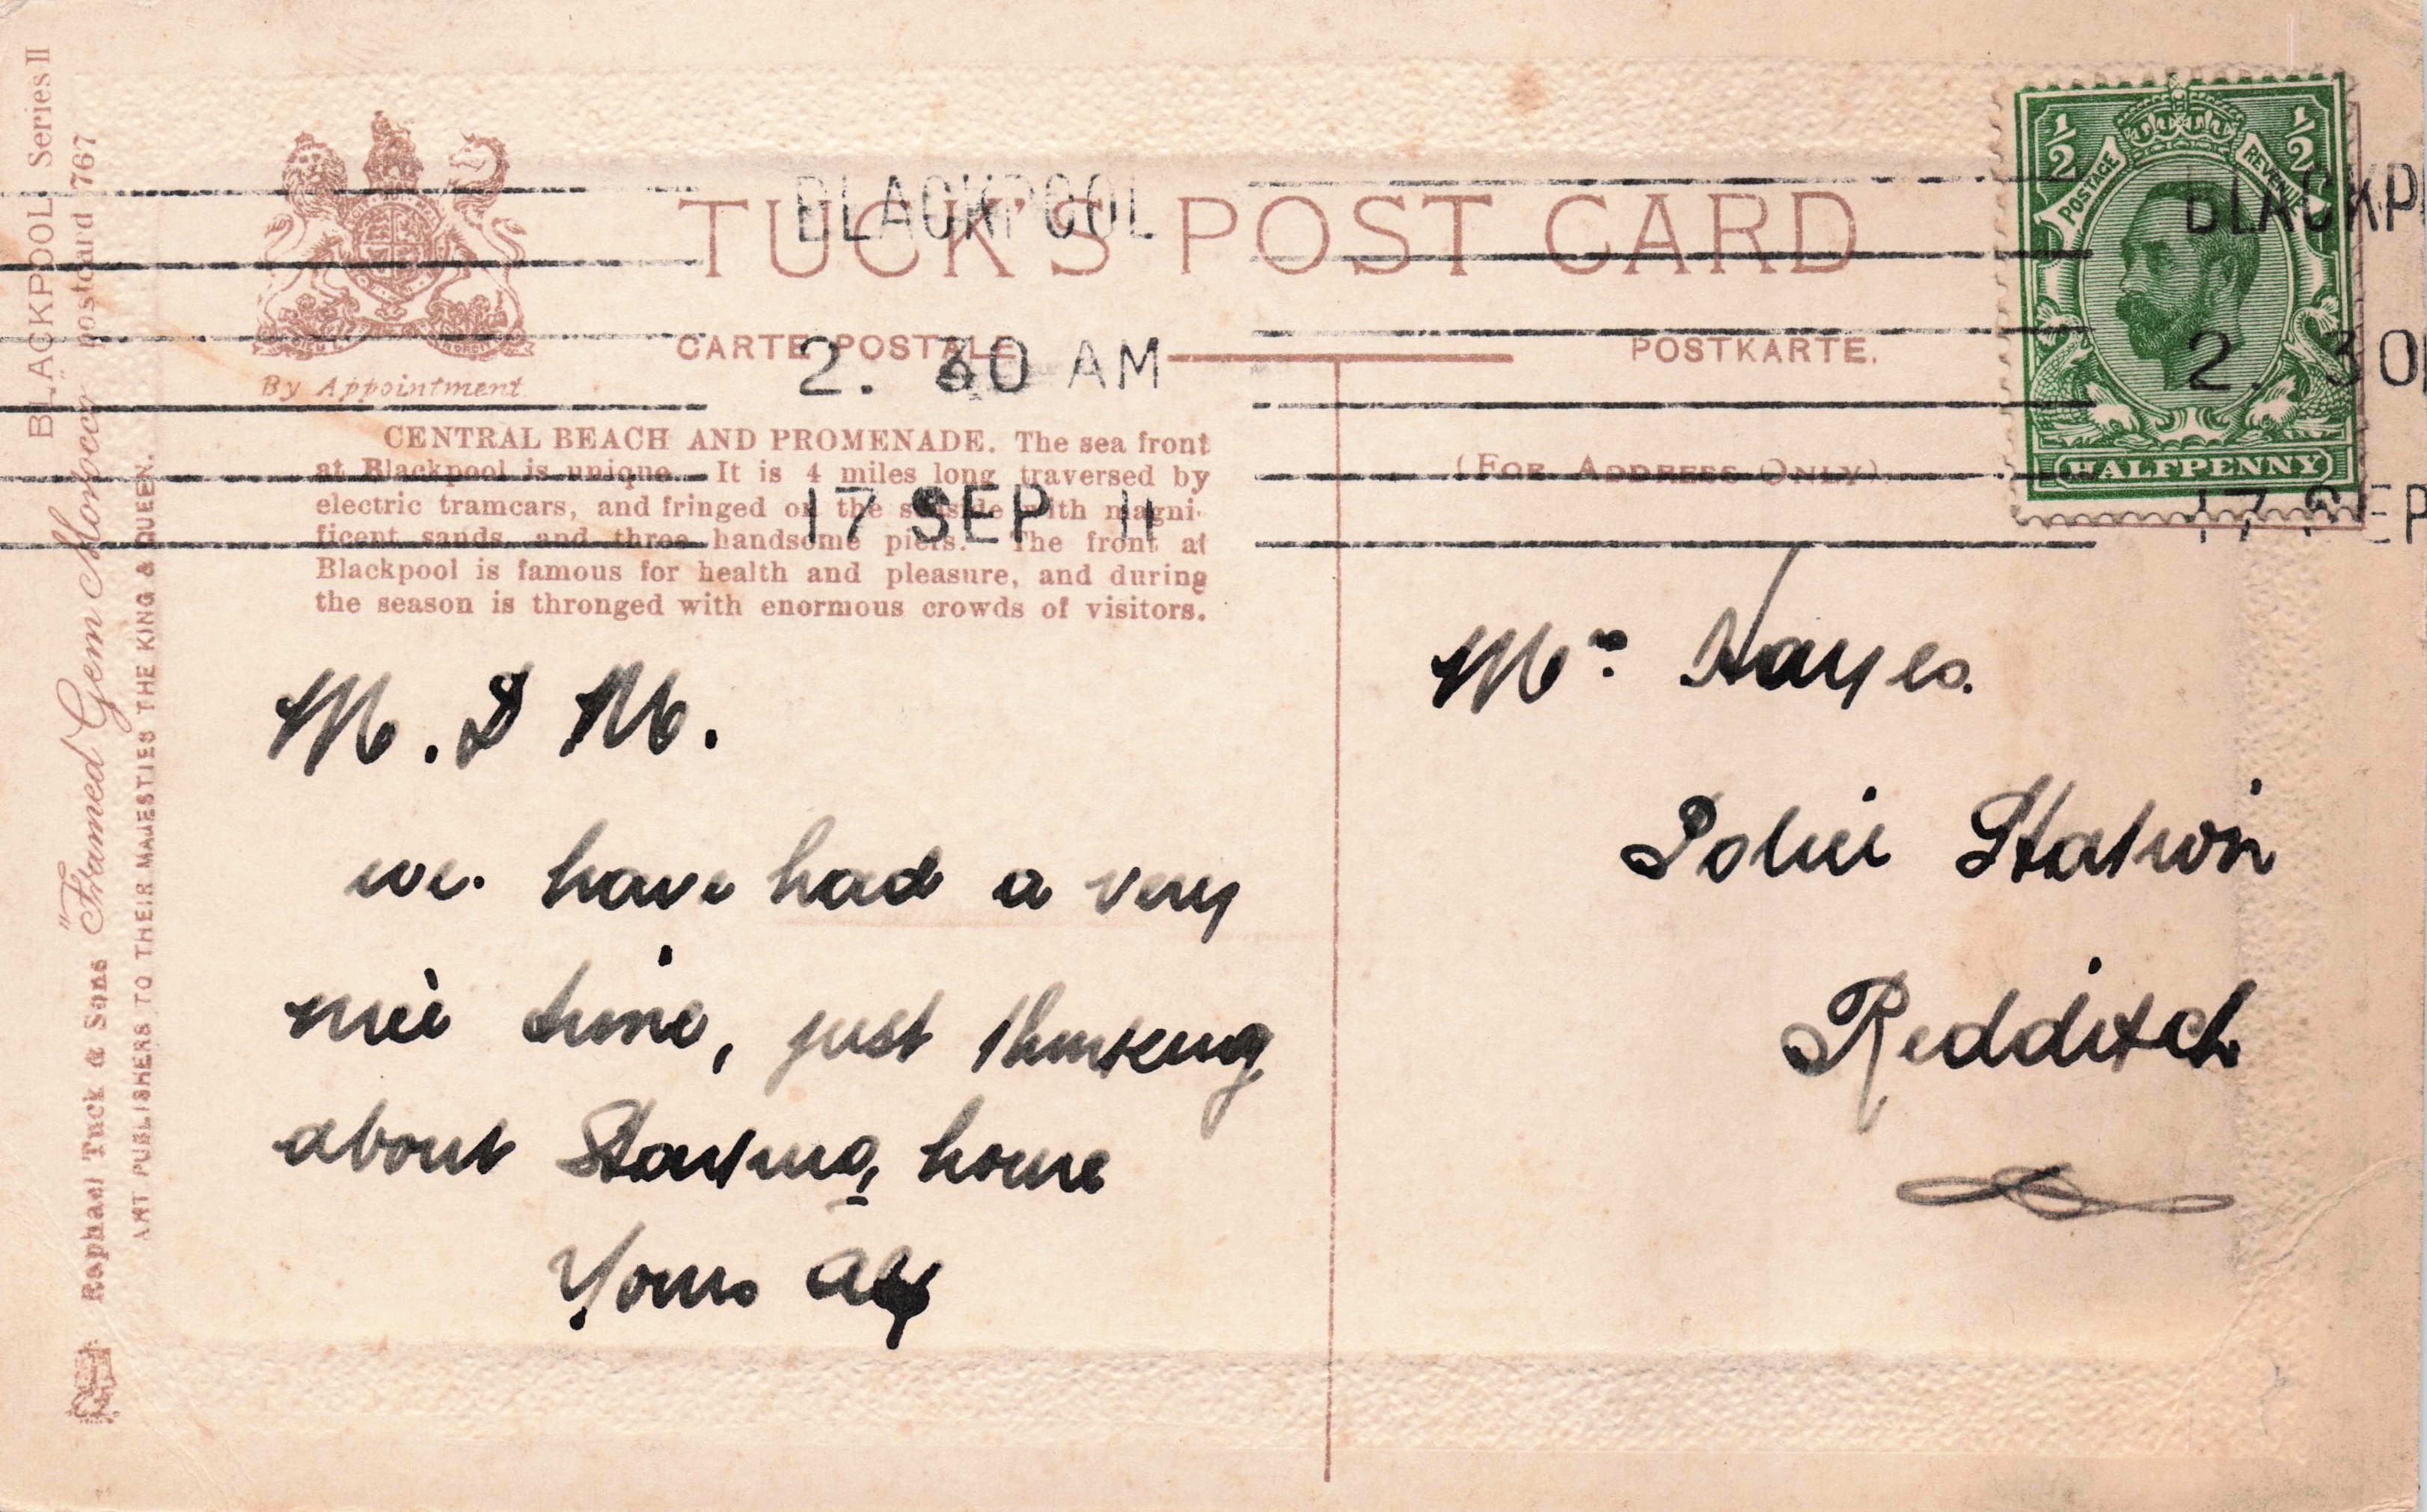 BLACKPOOL Series II
Raphael Tuck & Sons "Framed Gem Morocco" postcard 767
ART PUBLISHERS TO THEIR MAJESTIES THE KING & QUEEN.
By Appointment
TUCK'S POST CARD
CARTE POSTALE
POSTKARTE.
(FOR ADDRESS ONLY)
BLACKPOOL
2. 30 AM
17 SEP 11
½ ½
POSTAGE REVENUE
HALFPENNY
BLACKP
2. 30
17 SEP
CENTRAL BEACH AND PROMENADE. The sea front
at Blackpool is unique. It is 4 miles long traversed by
electric tramcars, and fringed on the seaside with magni-
ficent sands and three handsome piers. The front at
Blackpool is famous for health and pleasure, and during
the season is thronged with enormous crowds of visitors.
M. D M.
we. have had a very
nice time, just thinking
about Starting home
Yours Alf
Mrs Hayes.
Police Station
Redditch